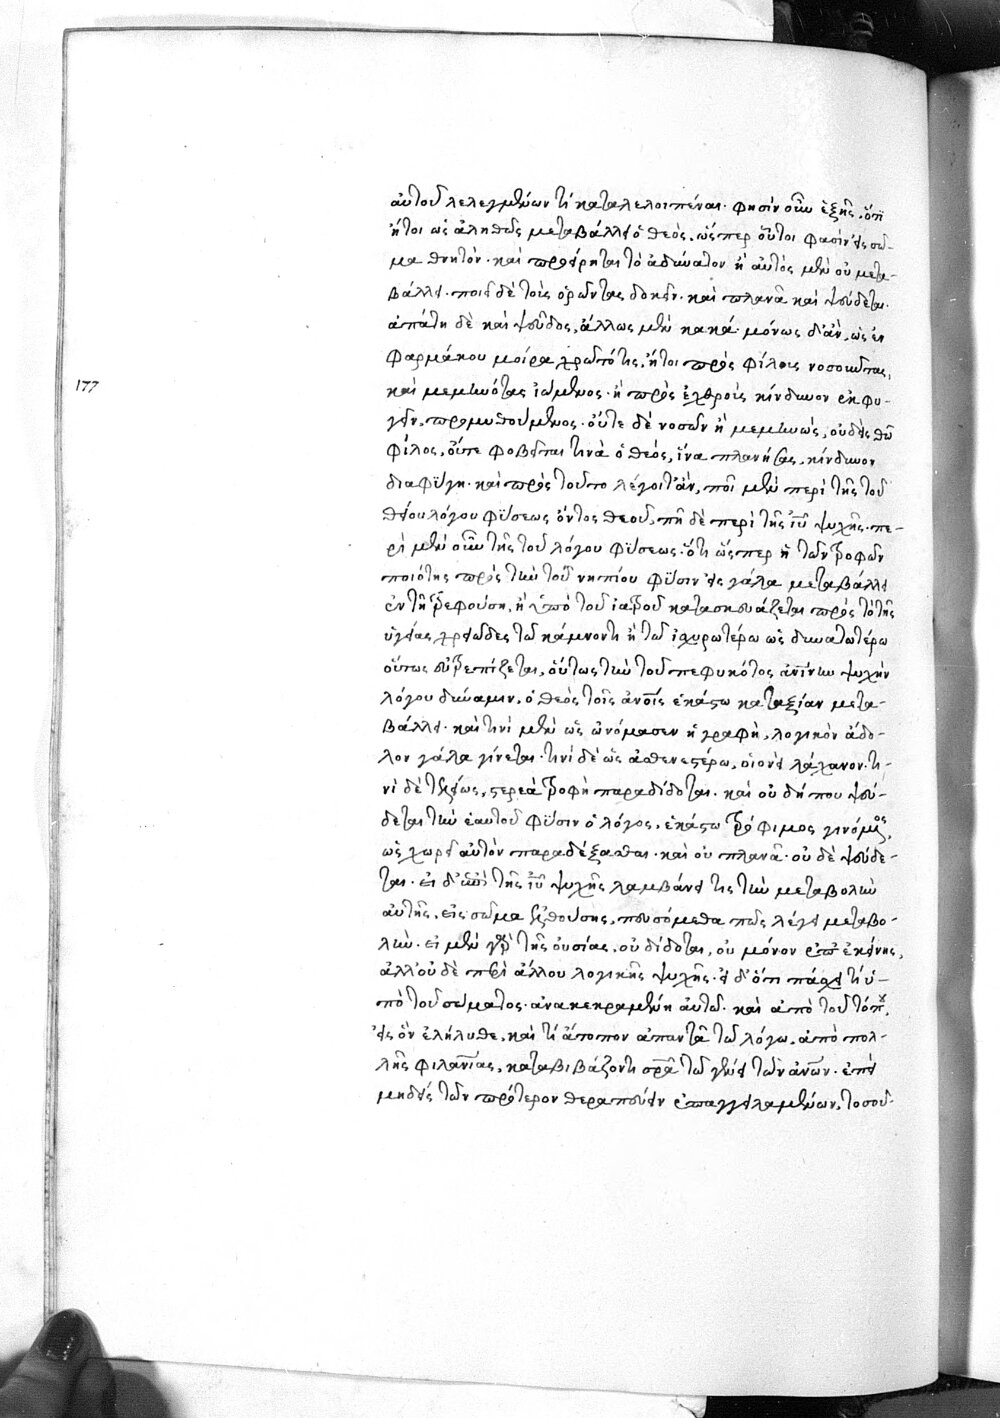 αὐτοῦ λελεγμένων τί καταλελοιπέναι. φησὶν οὖν ἑξῆς, ὅτι
ἤτοι ὡς ἀληθῶς μεταβάλλει ὁ θεὸς, ὥσπερ οὗτοι φασὶν εἰς σῶ-
μα θνητόν. καὶ προείρηται τὸ ἀδύνατον ἢ αὐτὸς μὲν οὐ μετα-
βάλλει. ποιεῖ δὲ τοὺς ὁρῶντας δοκεῖν. καὶ πλανᾷ καὶ ψεύδεται.
ἀπάτη δὲ καὶ ψεῦδος, ἄλλως μὲν κακά. μόνως δ' ἂν, ὡς ἐν
φαρμάκου μοίρᾳ χρῷτό τις, ἤτοι πρὸς φίλους νοσοῦντας,
177
καὶ μεμηνότας ἰώμενος. ἢ πρὸς ἐχθροὺς κίνδυνον ἐκφυ-
γεῖν, προμηθούμενος. οὔτε δὲ νοσῶν ἢ μεμηνὼς, οὐδεὶς θεῷ
φίλος, οὔτε φοβεῖται τινὰ ὁ θεὸς, ἵνα πλανήσας, κίνδυνον
διαφύγῃ. καὶ πρὸς τοῦτο λέγοιτ' ἂν, ποῖ μὲν περὶ τῆς τοῦ
θείου λόγου φύσεως ὄντος θεοῦ, πῆ δὲ περὶ τῆς ἰῦ ψυχῆς. πε-
ρὶ μὲν οὖν τῆς τοῦ λόγου φύσεως. ὅτι ὥσπερ ἡ τῶν τροφῶν
ποιότης πρὸς τὴν τοῦ νηπίου φύσιν εἰς γάλα μεταβάλλει
ἐν τῇ τρεφούσῃ, ἢ ὑπὸ τοῦ ἰατροῦ κατασκευάζεται πρὸς τὸ τῆς
ὑγείας χρειῶδες τῷ κάμνοντι ἢ τῷ ἰσχυρωτέρῳ ὡς δυνατωτέρῳ
οὕτως εὐτρεπίζεται, οὕτως τὴν τοῦ πεφυκότος ἀνίνην ψυχὴν
λόγου δύναμιν, ὁ θεὸς τοῖς ἀνοῖς ἑκάστῳ καταξίαν μετα-
βάλλει. καὶ τινὶ μὲν ὡς ὠνόμασεν ἡ γραφὴ, λογικὸν ἄδο-
λον γάλα γίνεται. τινὶ δὲ ὡς ἀσθενεστέρῳ, οἱονεὶ λάχανον. τι-
νὶ δὲ τελείως, στερεὰ τροφὴ παραδίδοται. καὶ οὐ δήπου ψεύ-
δεται τὴν ἑαυτοῦ φύσιν ὁ λόγος, ἑκάστῳ τρόφιμος γινόμενος,
ὡς χωρεῖ αὐτὸν παραδέξασθαι. καὶ οὐ πλανᾷ. οὐδὲ ψεύδε-
ται. εἰ δ' ἐπὶ τῆς ἰῦ ψυχῆς λαμβάνει τις τὴν μεταβολὴν
αὐτῆς, εἰς σῶμα ἐλθούσης, πευσόμεθα πῶς λέγει μεταβο-
λήν. εἰ μὲν γὰρ τῆς οὐσίας, οὐ δίδοται, οὐ μόνον ἐπ' ἐκείνης,
ἀλλ' οὐδὲ περὶ ἄλλου λογικῆς ψυχῆς. εἰ δ' ὅτι πάσχει τι ὑ-
πὸ τοῦ σώματος. ἀνακεκραμένη αὐτῷ. καὶ ἀπὸ τοῦ τόπου,
εἰς ὃν ἐλήλυθε, καὶ τί ἄτοπον ἀπαντᾷ τῷ λόγῳ, ἀπὸ πολ-
λῆς φιλανίας, καταβιβάζοντι σρᾶ τῷ γένει τῶν ἀνων. ἐπεὶ
μηδεὶς τῶν πρότερον θεραπεύειν ἐπαγγειλαμένων, τοσοῦ-